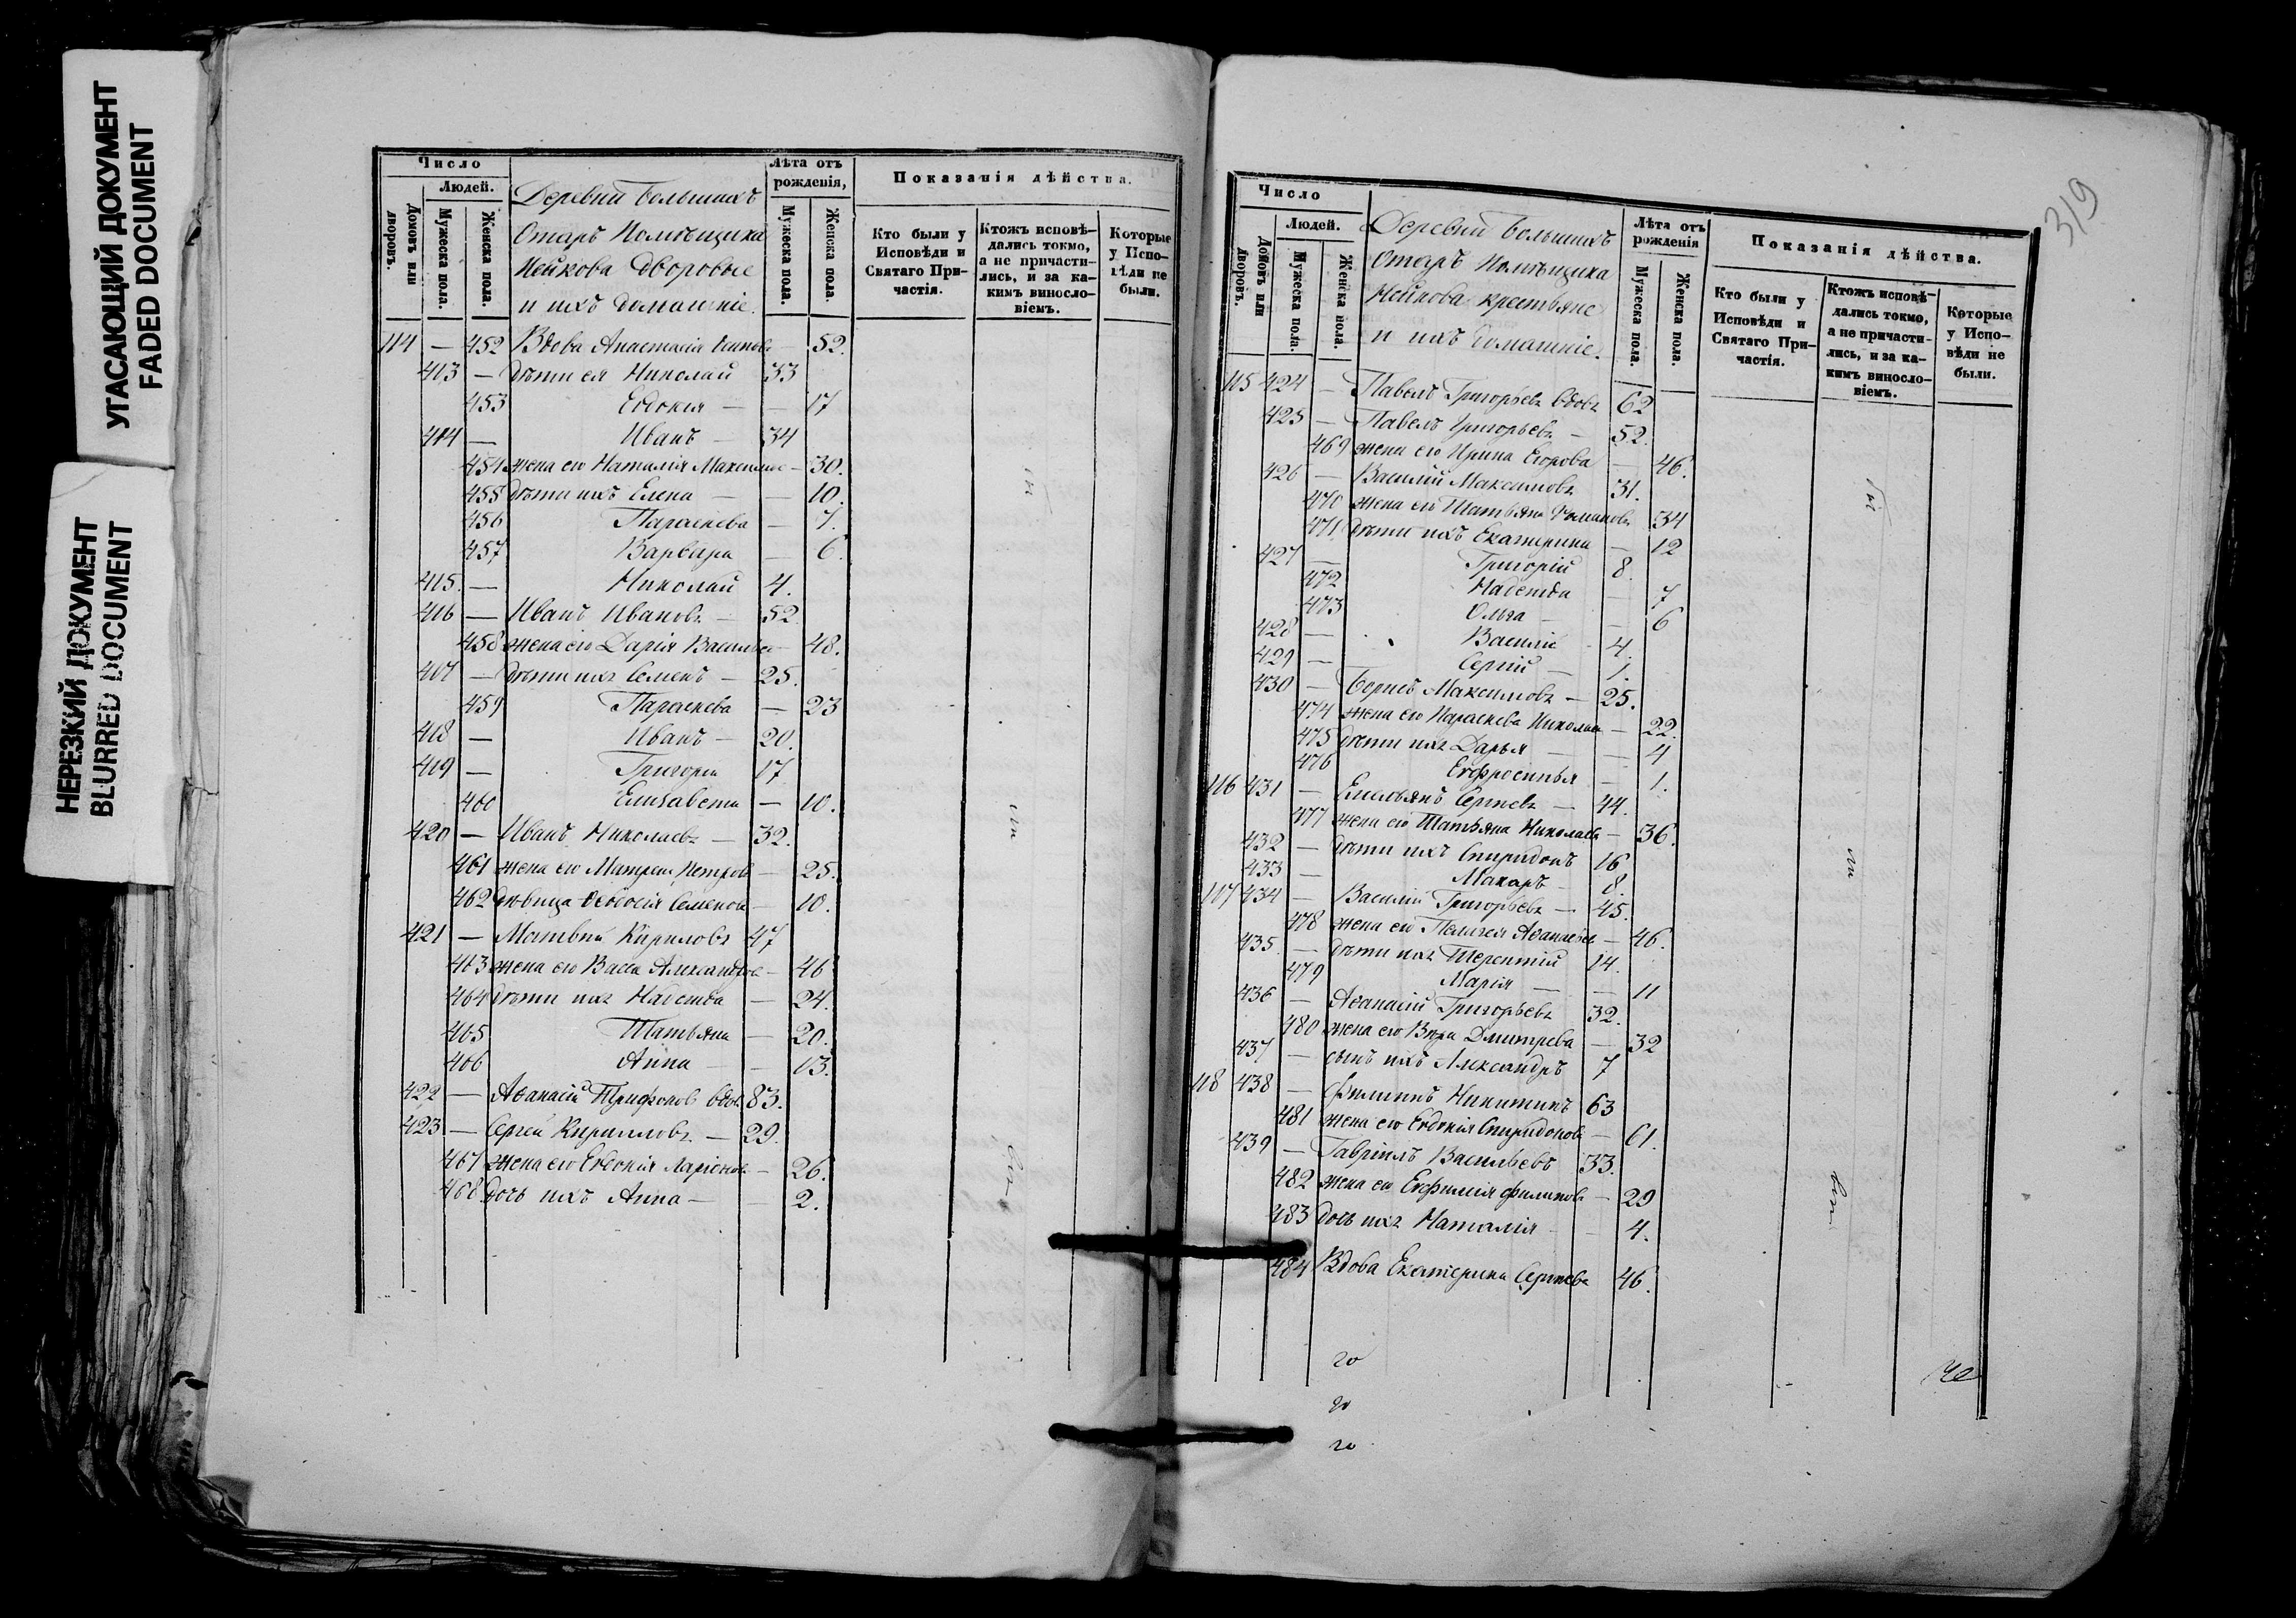 УГАСАЮЩИЙ ДОКУМЕНТ
FADED DOCUMENT
НЕРЕЗКИЙ ДОКУМЕНТ
BLURRED DOCUMENT
Число
Людей.
Домовъ или дворовъ.
Мужеска пола.
Женска пола.
Деревни Большихъ
Отаръ Помѣщика
Нейкова Дворовые
и ихъ домашніе.
Лѣта отъ рожденія,
Мужеска пола.
Женска пола.
Показанія дѣйства.
Кто были у Исповѣди и Святаго Причастія.
Ктожъ исповѣдались токмо, а не причастились, и за какимъ винословіемъ.
Которые у Исповѣди не были.
114 — 452 Вдова Анастасія Осипова — 52.
413 — дѣти ея Николай 33
453 Евдокия — — 17
414 — Иванъ — 34
454 жена его Наталія Максимова — 30.
455 дѣти ихъ Елена — — 10.
456 Параскева — 7.
457 Варвара — 6.
415. — Николай 4.
416 — Иванъ Ивановъ — 52
458 жена его Дарія Васильева — 48.
417 — дѣти ихъ Семенъ — 25.
459 Параскева — 23
418 — Иванъ — 20.
419 — Григорій 17
460 Елизавета — 10.
420 — Иванъ Николаевъ — 32.
461 жена его Матрена Петрова — 25.
462 дѣвица Ѳеодосія Семенова — 10.
421 — Матвѣй Кириловъ 47
463 жена его Васса Александрова — 46
464 дѣти ихъ Надежда — 24.
465 Татьяна — 20.
466 Анна — 13.
422 — Аѳанасій Трифоновъ вдов. 83.
423 — Сергѣй Кирилловъ — 29.
467 жена его Евдокія Ларіонова — 26.
468 дочь ихъ Анна — 2.
319
Число
Людей.
Домовъ или дворовъ.
Мужеска пола.
Женска пола.
Деревни Большихъ
Отаръ Помѣщика
Нейкова крестьяне
и ихъ домашніе.
Лѣта отъ рожденія
Мужеска пола.
Женска пола.
Показанія дѣйства.
Кто были у Исповѣди и Святаго Причастія.
Ктожъ исповѣдались токмо, а не причастились, и за какимъ винословіемъ.
Которые у Исповѣди не были.
115 424 — Павелъ Григорьевъ вдовъ 62
425 — Павелъ Григорьевъ — 52.
469 жена его Ирина Егорова — 46.
426 — Василій Максимовъ 31.
470 жена его Татьяна Романова 34
471 дѣти ихъ Екатерина — 12
427 — Григорій 8.
472 Надежда — 7
473 Ольга — — 6
428 — Василій 4.
429 — Сергій — 1.
430 — Борисъ Максимовъ — 25.
474 жена его Параскева Николаева — 22.
475 дѣти ихъ Дарья — — 4
476 Евфросинья — 1.
116 431 — Емельянъ Сергѣевъ — 44.
477 жена его Татьяна Николаева — 36.
432 — дѣти ихъ Спиридонъ 16
433 — Макаръ — 8.
117 434 — Василій Григорьевъ — 45.
478 жена его Пелагея Аѳанасьева — 46.
435 — дѣти ихъ Терентій 14.
479 Марія — — 11
436 — Аѳанасій Григорьевъ 32.
480 жена его Вѣра Дмитріева — 32
437 — сынъ ихъ Александръ 7
118 438 — Филиппъ Никитинъ 63
481 жена его Евдокія Спиридонова — 61.
439 — Гавріилъ Васильевъ 33.
482 жена его Евфимія Филипова — 29
483 дочь ихъ Наталія — 4.
484 Вдова Екатерина Сергѣева 46.